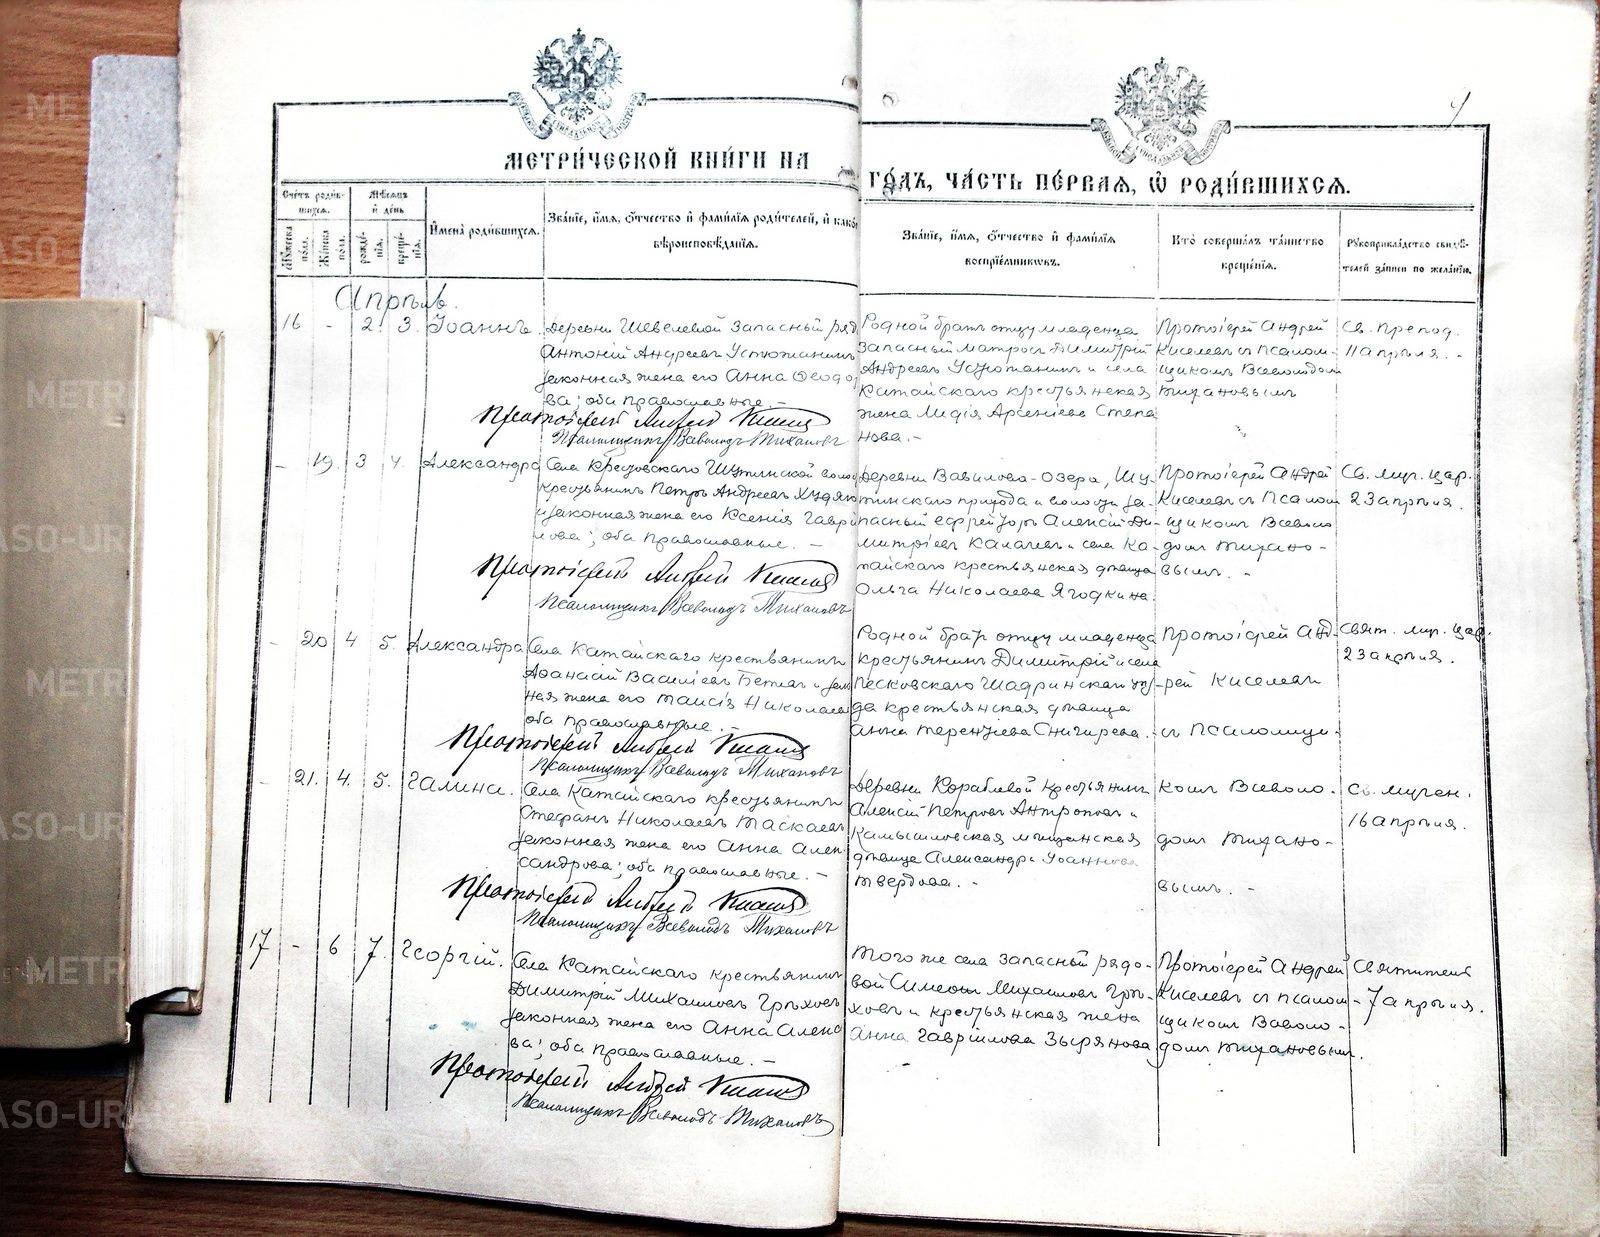 МЕТРИ́ЧЕСКОЙ КНИ́ГИ НА
ГО́ДЪ, ЧА́СТЬ ПЕ́РВАЯ, Ѡ҆ РОДИ́ВШИХСЯ.
Сче́тъ роди́в-
шихся.
Му́жеска по́ла.
Же́нска по́ла.
Мѣ́сяцъ
и҆ де́нь
рожде́-
нїя.
креще́-
нїя.
И҆мена̀ роди́вшихся.
Зва́нїе, и҆́мя, ѻ҆́тчество и҆ фами́лїя роди́телей, и҆ како́
вѣроисповѣ́данїя.
Зва́нїе, и҆́мя, ѻ҆́тчество и҆ фами́лїя
воспрїе́мниковъ.
Кто̀ соверша́лъ та́инство
креще́нїя.
Рꙋкоприкла́дство свидѣ́-
телей за́писи по жела́нїю.
Апрѣль.
16 - 2. 3. Іоаннъ.
Деревни Шевелевой запасный ряд
Антоній Андреевъ Устюжанинъ
законная жена его Анна Ѳеодо
ва; оба православные. -
Протоіерей Андрей Киселев
Псаломщикъ Всеволодъ Тихановъ
Родной братъ отцу младенца
запасный матросъ Димитрій
Андреевъ Устюжанинъ и села
Катайскаго крестьянская
жена Лидія Арсеніева Степа
нова. -
Протоіерей Андрей
Киселевъ съ псалом-
щикомъ Всеволодом
Тихановымъ
Св. препод.
11 апрѣля. -
- 19. 3 4. Александра
Села Крестовскаго Шутинской воло
крестьянинъ Петръ Андреевъ Худяк
и законная жена его Ксенія Гаврі
лова; оба православные. -
Протоіерей Андрей Киселев
Псаломщикъ Всеволодъ Тихановъ
Деревни Вавилова-озера, Шу-
тинскаго прихода и волости за-
пасный ефрейторъ Алексій Ди-
митріевъ Калачевъ и села Ка-
тайскаго крестьянская дѣвица
Ольга Николаева Ягодкина.
Протоіерей Андрей
Киселевъ съ псалом
щикомъ Всеволо
домъ Тихано-
вымъ. -
Св. муч. цар.
23 апрѣля.
- 20 4 5. Александра
Села Катайскаго крестьянинъ
Аѳанасій Василіевъ и зако
ная жена его Таисія Николаев
оба православные. -
Протоіерей Андрей Киселев
Псаломщикъ Всеволодъ Тихановъ
Родной братъ отцу младенца
крестьянинъ Димитрій и села
Песковскаго Шадринскаго уѣз-
да крестьянская дѣвица
Анна Терентіева Снигирева.
Протоіерей Анд-
рей Киселевъ
съ псаломщи-
Свят. муч. цар.
23 апрѣля.
- 21. 4. 5. Галина.
Села Катайскаго крестьянинъ
Стефанъ Николаевъ Таскаевъ
законная жена его Анна Алек
сандрова; оба православные. -
Протоіерей Андрей Киселев
Псаломщикъ Всеволодъ Тихановъ
Деревни Кораблевой крестьянинъ
Алексій Петровъ Антроповъ и
Камышловская мѣщанская
дѣвица Александра Іоаннова
Твердова. -
комъ Всеволо-
домъ Тихано-
вымъ. -
Св. мучен.
16 апрѣля.
17 - 6 7. Георгій.
Села Катайскаго крестьянинъ
Димитрій Михаиловъ Грѣховъ
законная жена его Анна Алекс
ва; оба православные. -
Протоіерей Андрей Киселев
Псаломщикъ Всеволодъ Тихановъ
Того же села запасный рядо-
вой Симеонъ Михаиловъ Грѣ-
ховъ и крестьянская жена
Анна Гавріилова Зырянова
Протоіерей Андрей
Киселевъ съ псалом-
щикомъ Всеволо-
домъ Тихановымъ.
Святителя
7 апрѣля.